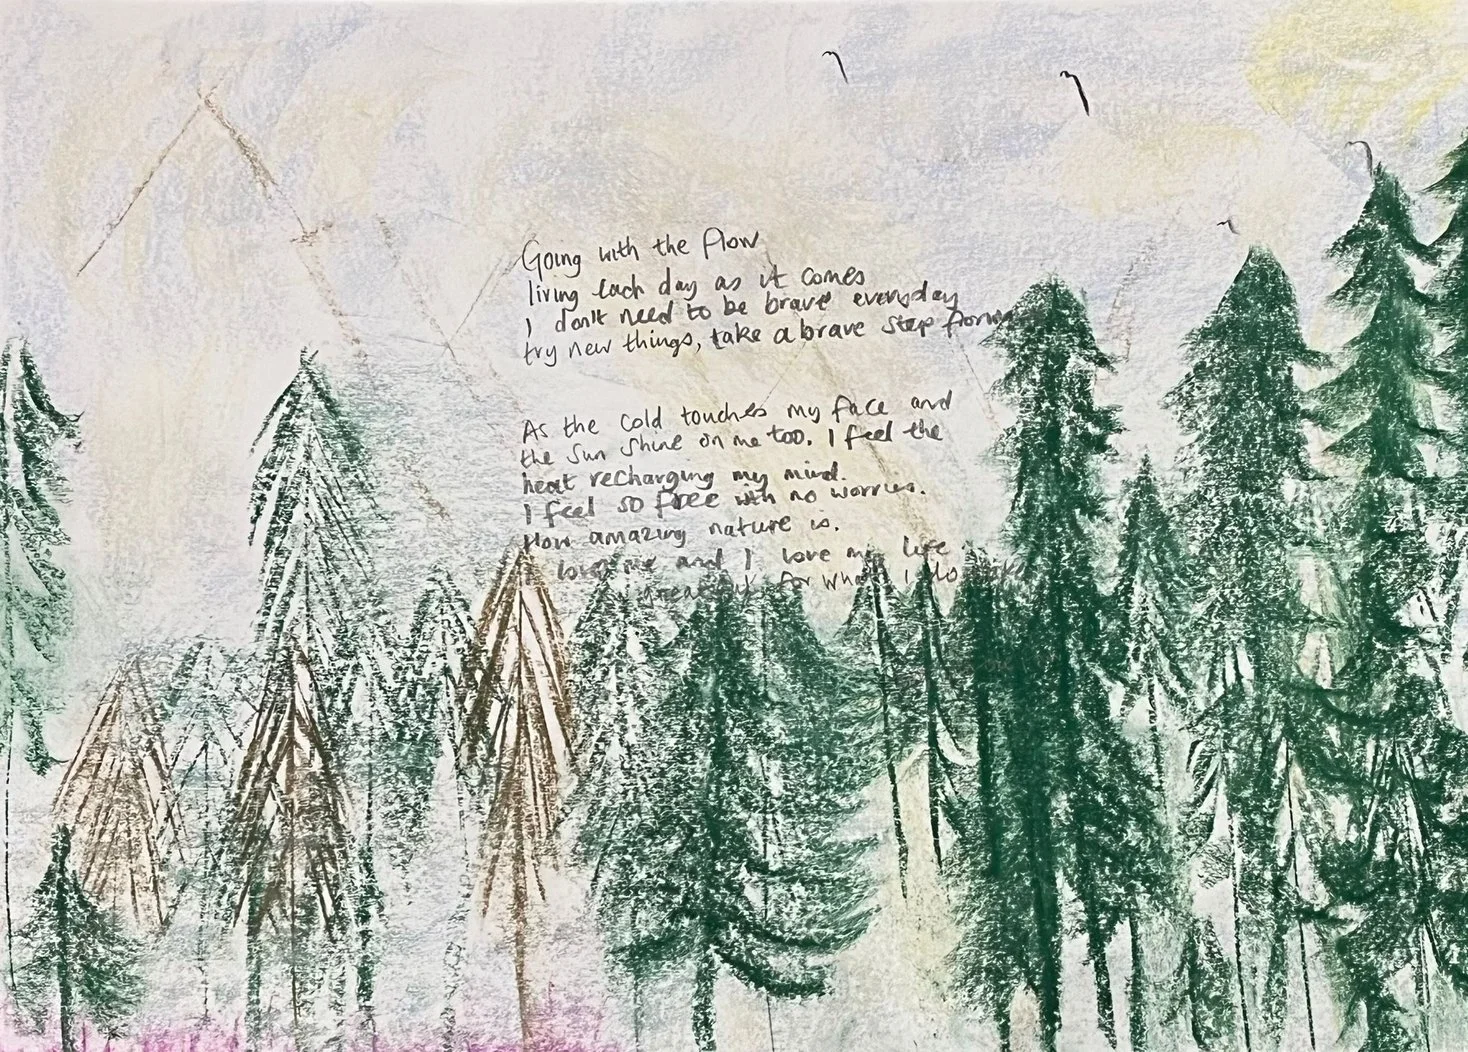 Going with the flow
living each day as it comes
I don't need to be brave everyday
try new things, take a brave step forward
As the cold touches my face and
the sun shine on me too. I feel the
heat recharging my mind.
I feel so free with no worries.
How amazing nature is.
love me and I love my life
for what I do